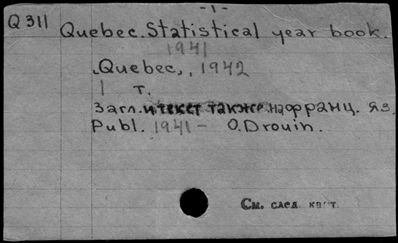 -1-
Q311 Quebec. Statistical year book.
1941
Quebec, 1942
1 т.
Загл. и текст также на франц. яз.
Publ. 1941 - O. Drouin.
См. след. карт.